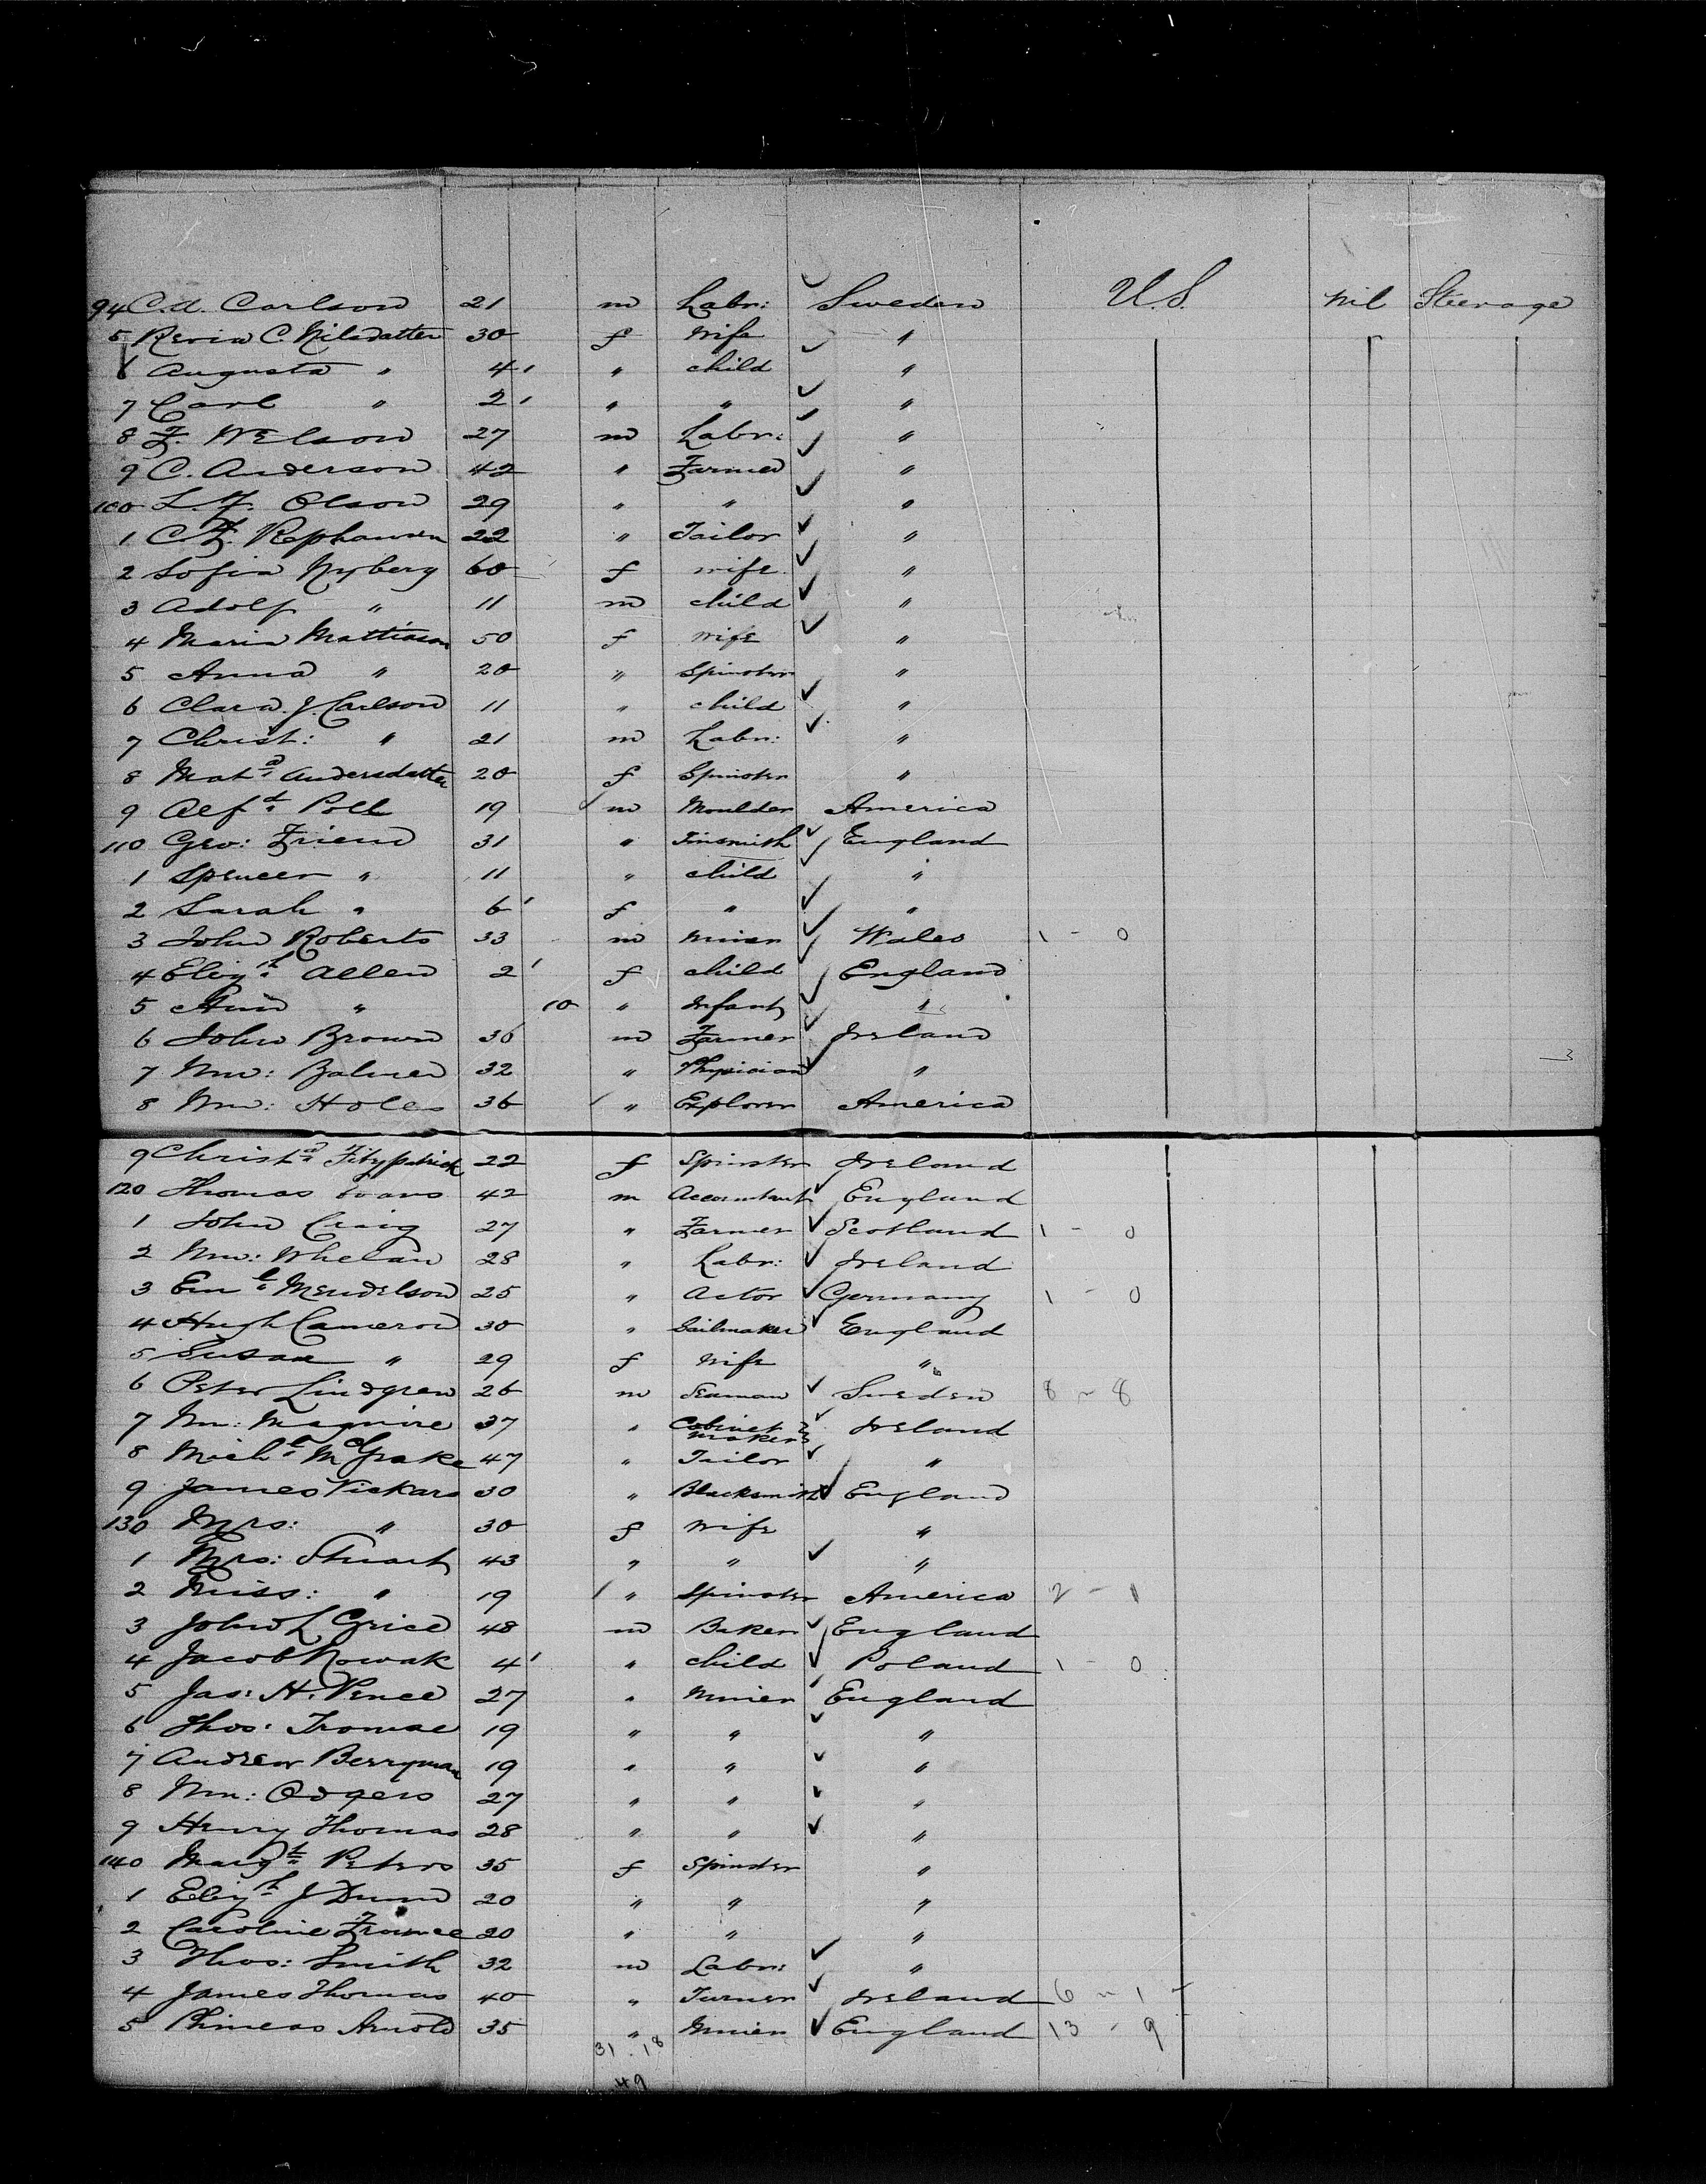 94 C.A. Carlson 21 m Labr: Sweden U.S. nil Steerage
5 C. Nilsdatter 30 f Wife "
6 Augusta " 4 " child "
7 Carl " 2 " " "
8 F. Nelson 27 m Labr: "
9 C. Anderson 42 " Farmer "
100 L.J. Olson 29 " " "
1 C.F. 22 " Tailor "
2 Sofia Nyberg 60 f wife "
3 Adolf " 11 m child "
4 Maria Mattiason 50 f wife "
5 Anna " 20 " Spinster "
6 Clara J. Carlson 11 " child "
7 Christ: " 21 m Labr: "
8 Mat.a Andersdatter 20 f Spinster "
9 Alf.d Poll 19 m Moulder America
110 Geo: Friend 31 " Tinsmith England
1 Spencer " 11 " child "
2 Sarah " 6 f " "
3 John Roberts 33 m Miner Wales 1 - 0
4 Eliz.h Allen 2 f child England
5 Ann " 10 " Infant "
6 John Brown 30 m Farmer Ireland
7 Wm: 32 " Physician "
8 Wm: Holes 36 " Explorer America
9 Christ.a Fitzpatrick 22 f Spinster Ireland
120 Thomas Evans 42 m Accountant England
1 John Craig 27 " Farmer Scotland 1 - 0
2 Wm: Whelan 28 " Labr: Ireland
3 Em.l Mendelson 25 " Actor Germany 1 - 0
4 Hugh Cameron 30 " Sailmaker England
5 Susan " 29 f Wife "
6 Peter Lindgren 26 m Seaman Sweden 8 - 8
7 Wm: Maguire 37 " Cabinet maker Ireland
8 Mich.l 47 " Tailor "
9 James Vickars 30 " Blacksmith England
130 Mrs: " 30 f Wife "
1 Mrs: Stuart 43 " " "
2 Miss: " 19 " Spinster America 2 - 1
3 John L Grice 48 m Baker England
4 Jacob Nowak 4 " child Poland 1 - 0
5 Jas: H. Pence 27 " Miner England
6 Thos: 19 " " "
7 Andrew Berryman 19 " " "
8 Wm: Odgers 27 " " "
9 Henry Thomas 28 " " "
140 Marg.t Peters 35 f Spinster "
1 Eliz.h J Dunn 20 " " "
2 Caroline 20 " " "
3 Thos: Smith 32 m Labr: "
4 James Thomas 40 " Turner Ireland 6 - 1
5 Phineas Arnold 35 " Miner England 13 - 9
31 . 18
49